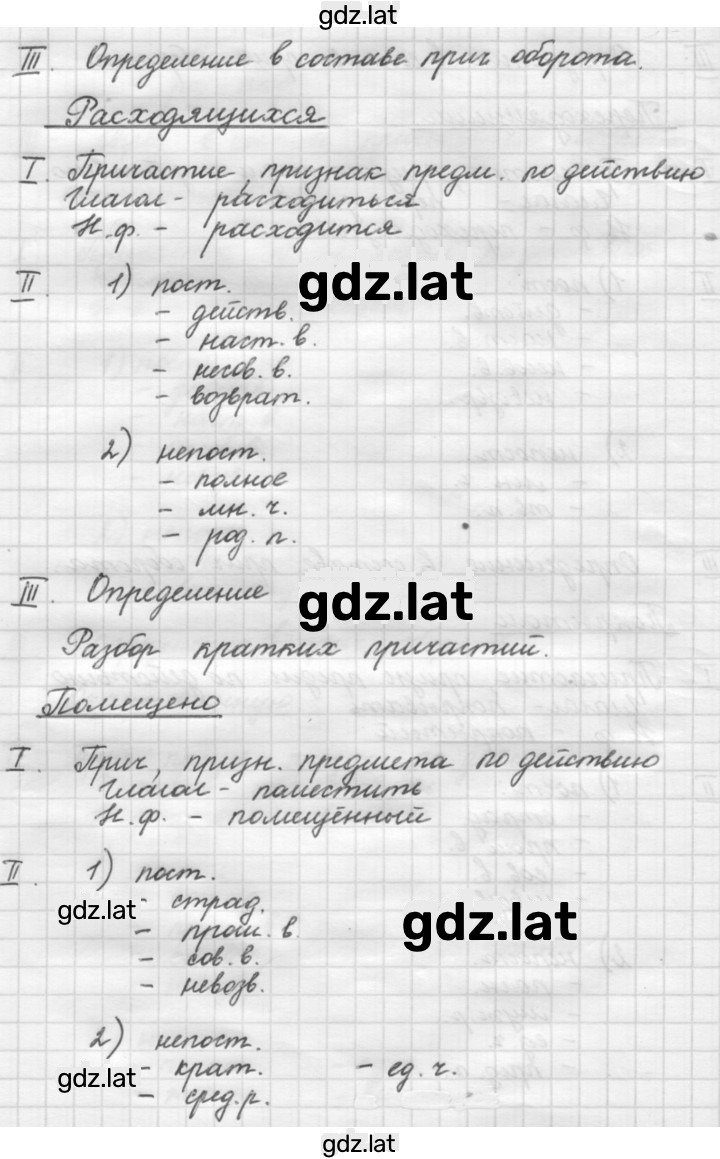 gdz.lat
III. Определение в составе прич оборота.
Расходящихся
I. Причастие, признак предм. по действию
Глагол - расходиться
Н.ф. - расходится
II. 1) пост.
gdz.lat
- действ.
- наст. в.
- несов. в.
- возврат.
2) непост.
- полное
- мн. ч.
- род. п.
III. Определение
gdz.lat
Разбор кратких причастий.
Помещено
I. Прич, призн. предмета по действию
Глагол - поместить
Н.ф. - помещённый
II. 1) пост.
gdz.lat
- страд.
gdz.lat
- прош. в.
- сов. в.
- невозв.
2) непост.
gdz.lat
- крат. - ед. ч.
- сред. р.
gdz.lat